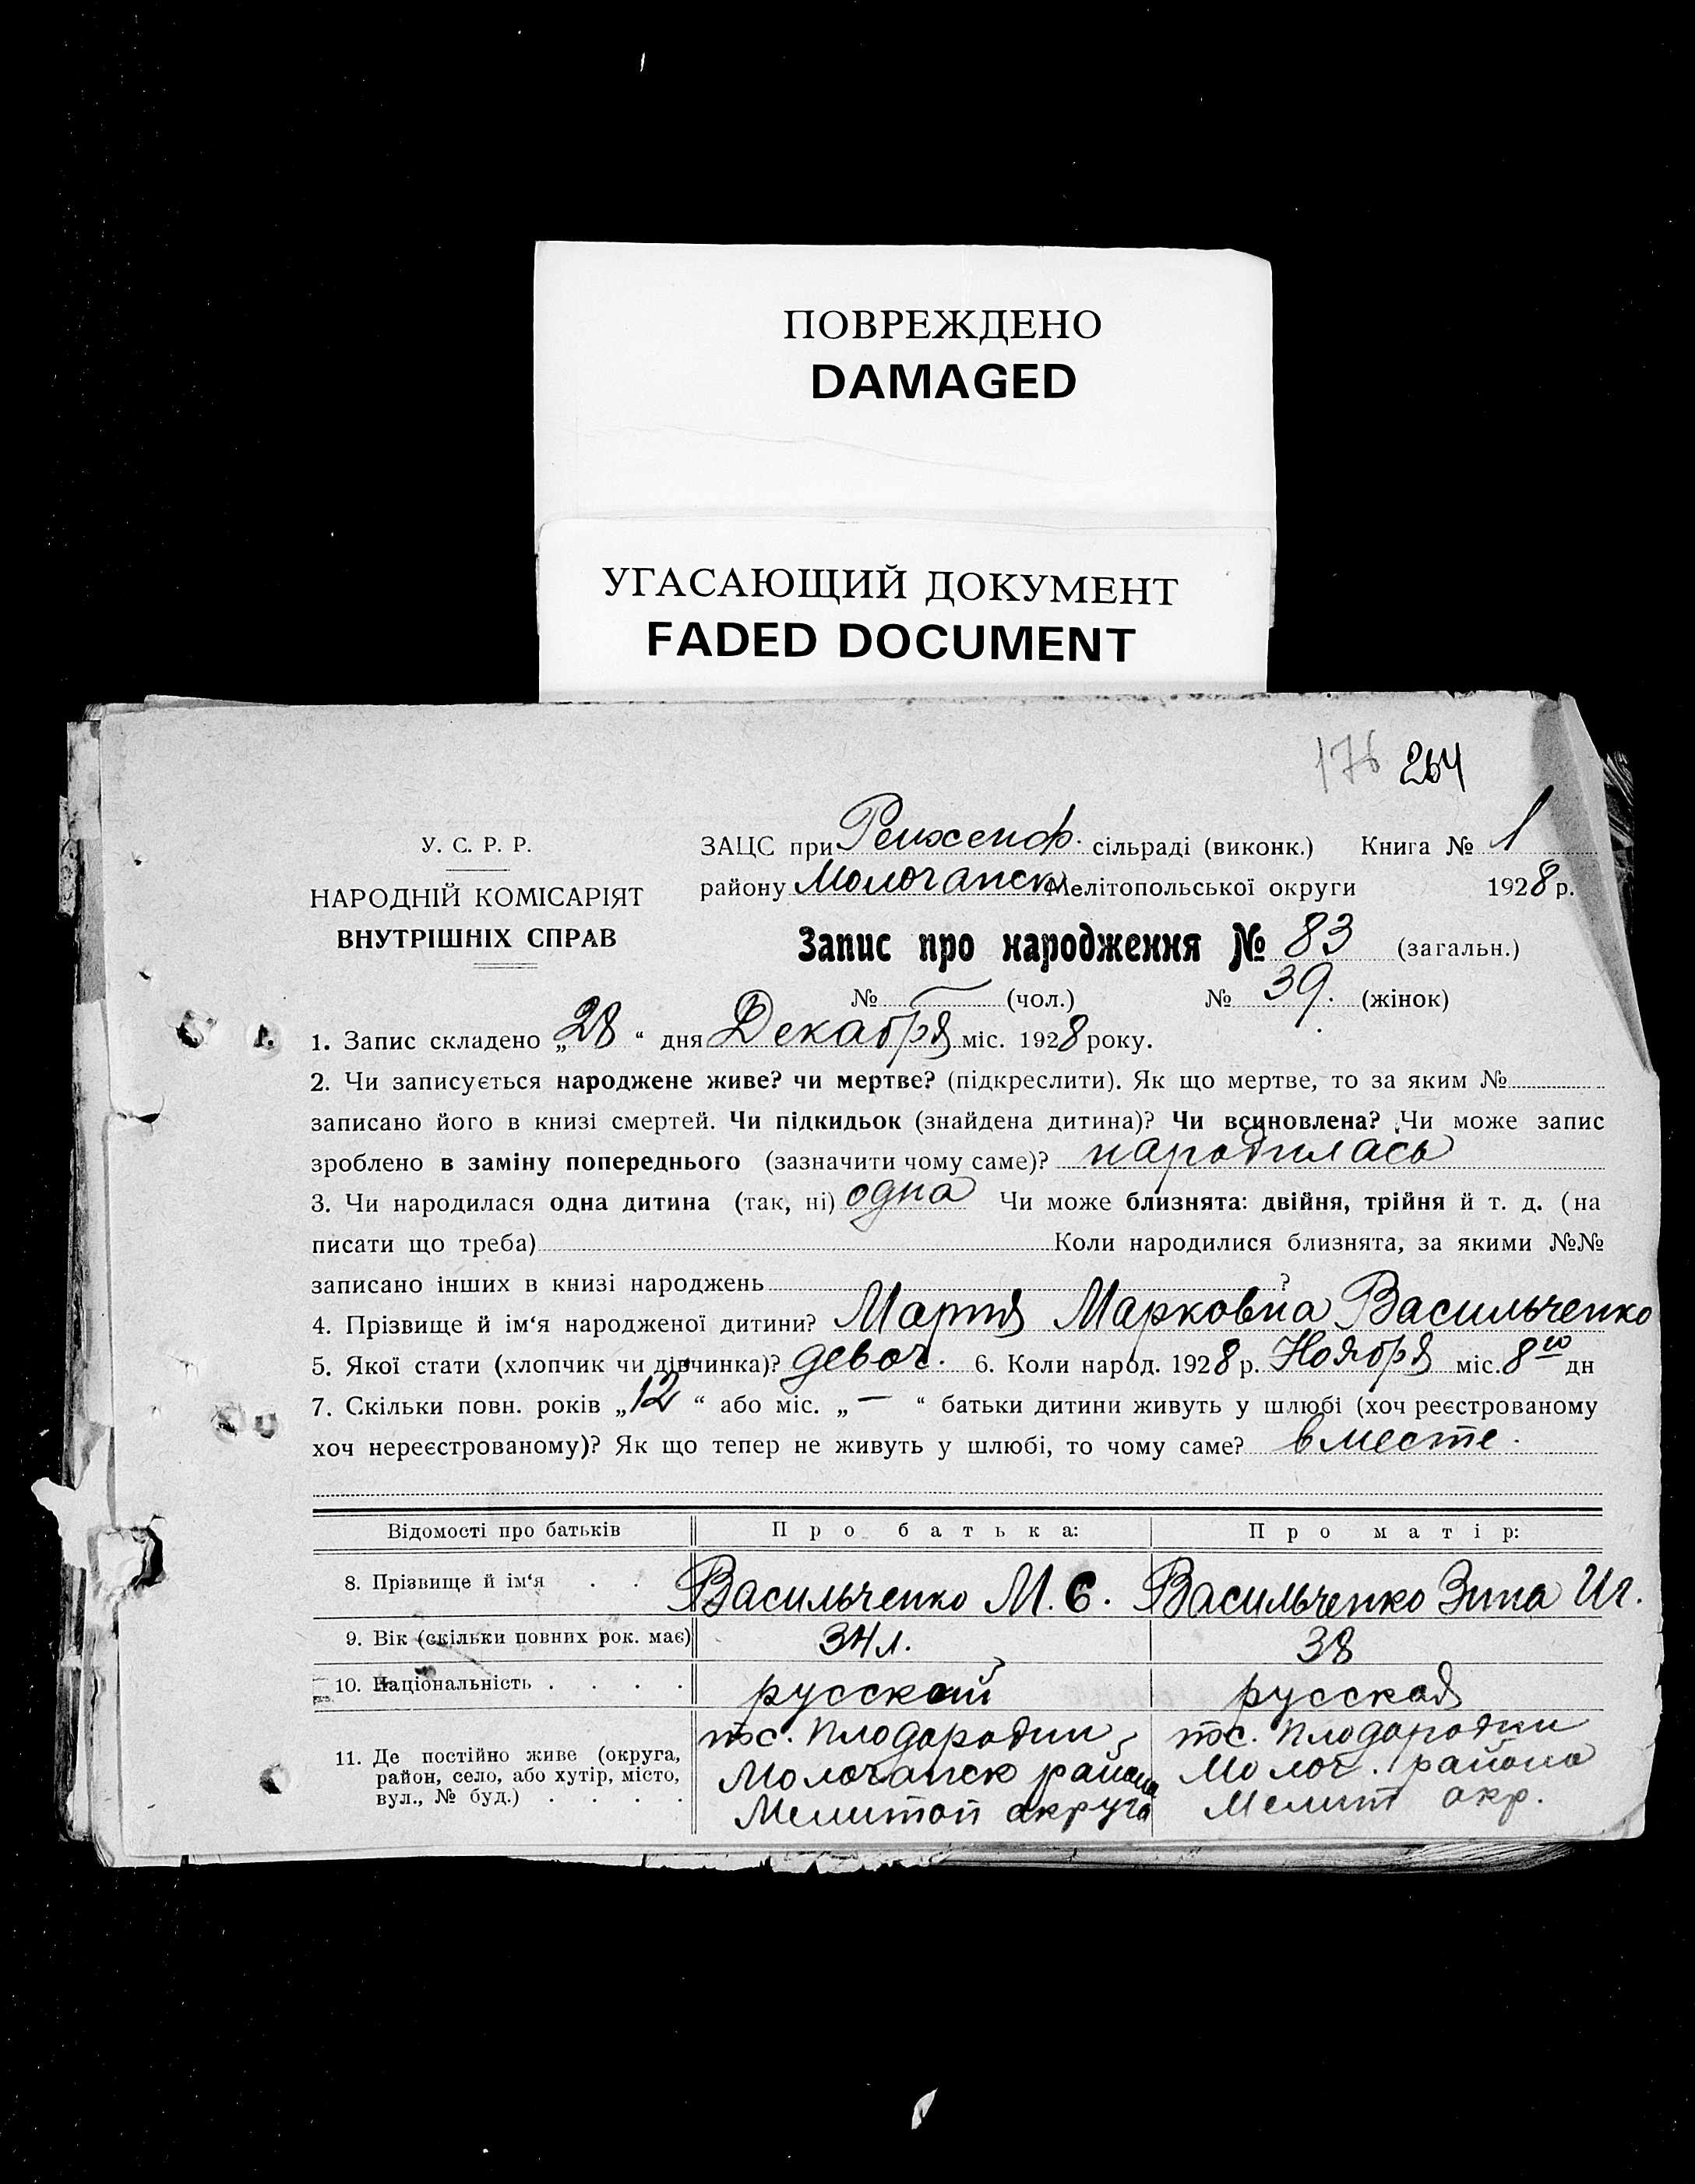 ПОВРЕЖДЕНО
DAMAGED
УГАСАЮЩИЙ ДОКУМЕНТ
FADED DOCUMENT
176 264
У. С. Р. Р.
НАРОДНІЙ КОМІСАРІЯТ
ВНУТРІШНІХ СПРАВ
ЗАЦС при Рейхенф. сільраді (виконк.) Книга № 1
району Молочанск Мелітопольської округи 1928 р.
Запис про народження № 83 (загальн.)
№ — (чол.) № 39. (жінок)
1. Запис складено „28“ дня Декабря міс. 1928 року.
2. Чи записується народжене живе? чи мертве? (підкреслити). Як що мертве, то за яким №
записано його в книзі смертей. Чи підкидьок (знайдена дитина)? Чи всиновлена? Чи може запис
зроблено в заміну попереднього (зазначити чому саме)? народилась
3. Чи народилася одна дитина (так, ні) одна Чи може близнята: двійня, трійня й т. д. (на
писати що треба) Коли народилися близнята, за якими №№
записано інших в книзі народжень ?
4. Прізвище й ім‘я народженої дитини? Марія Марковна Васильченко
5. Якої стати (хлопчик чи дівчинка)? девоч. 6. Коли народ. 1928 р. Ноября міс. 8го дн
7. Скільки повн. років „12“ або міс. „—“ батьки дитини живуть у шлюбі (хоч реєстрованому
хоч нереєстрованому)? Як що тепер не живуть у шлюбі, то чому саме? вместе.
Відомості про батьків Про батька: Про матір:
8. Прізвище й ім‘я . . Васильченко М. С. Васильченко Зина Иг.
9. Вік (скільки повних рок. має) 34 л. 38
10. Національність . . . . русский русская
11. Де постійно живе (округа, район, село, або хутір, місто, вул., № буд.) . . . .
пос. Плодородии Молочанск района Мелитоп округа
пос. Плодородии Молоч. района Мелит окр.